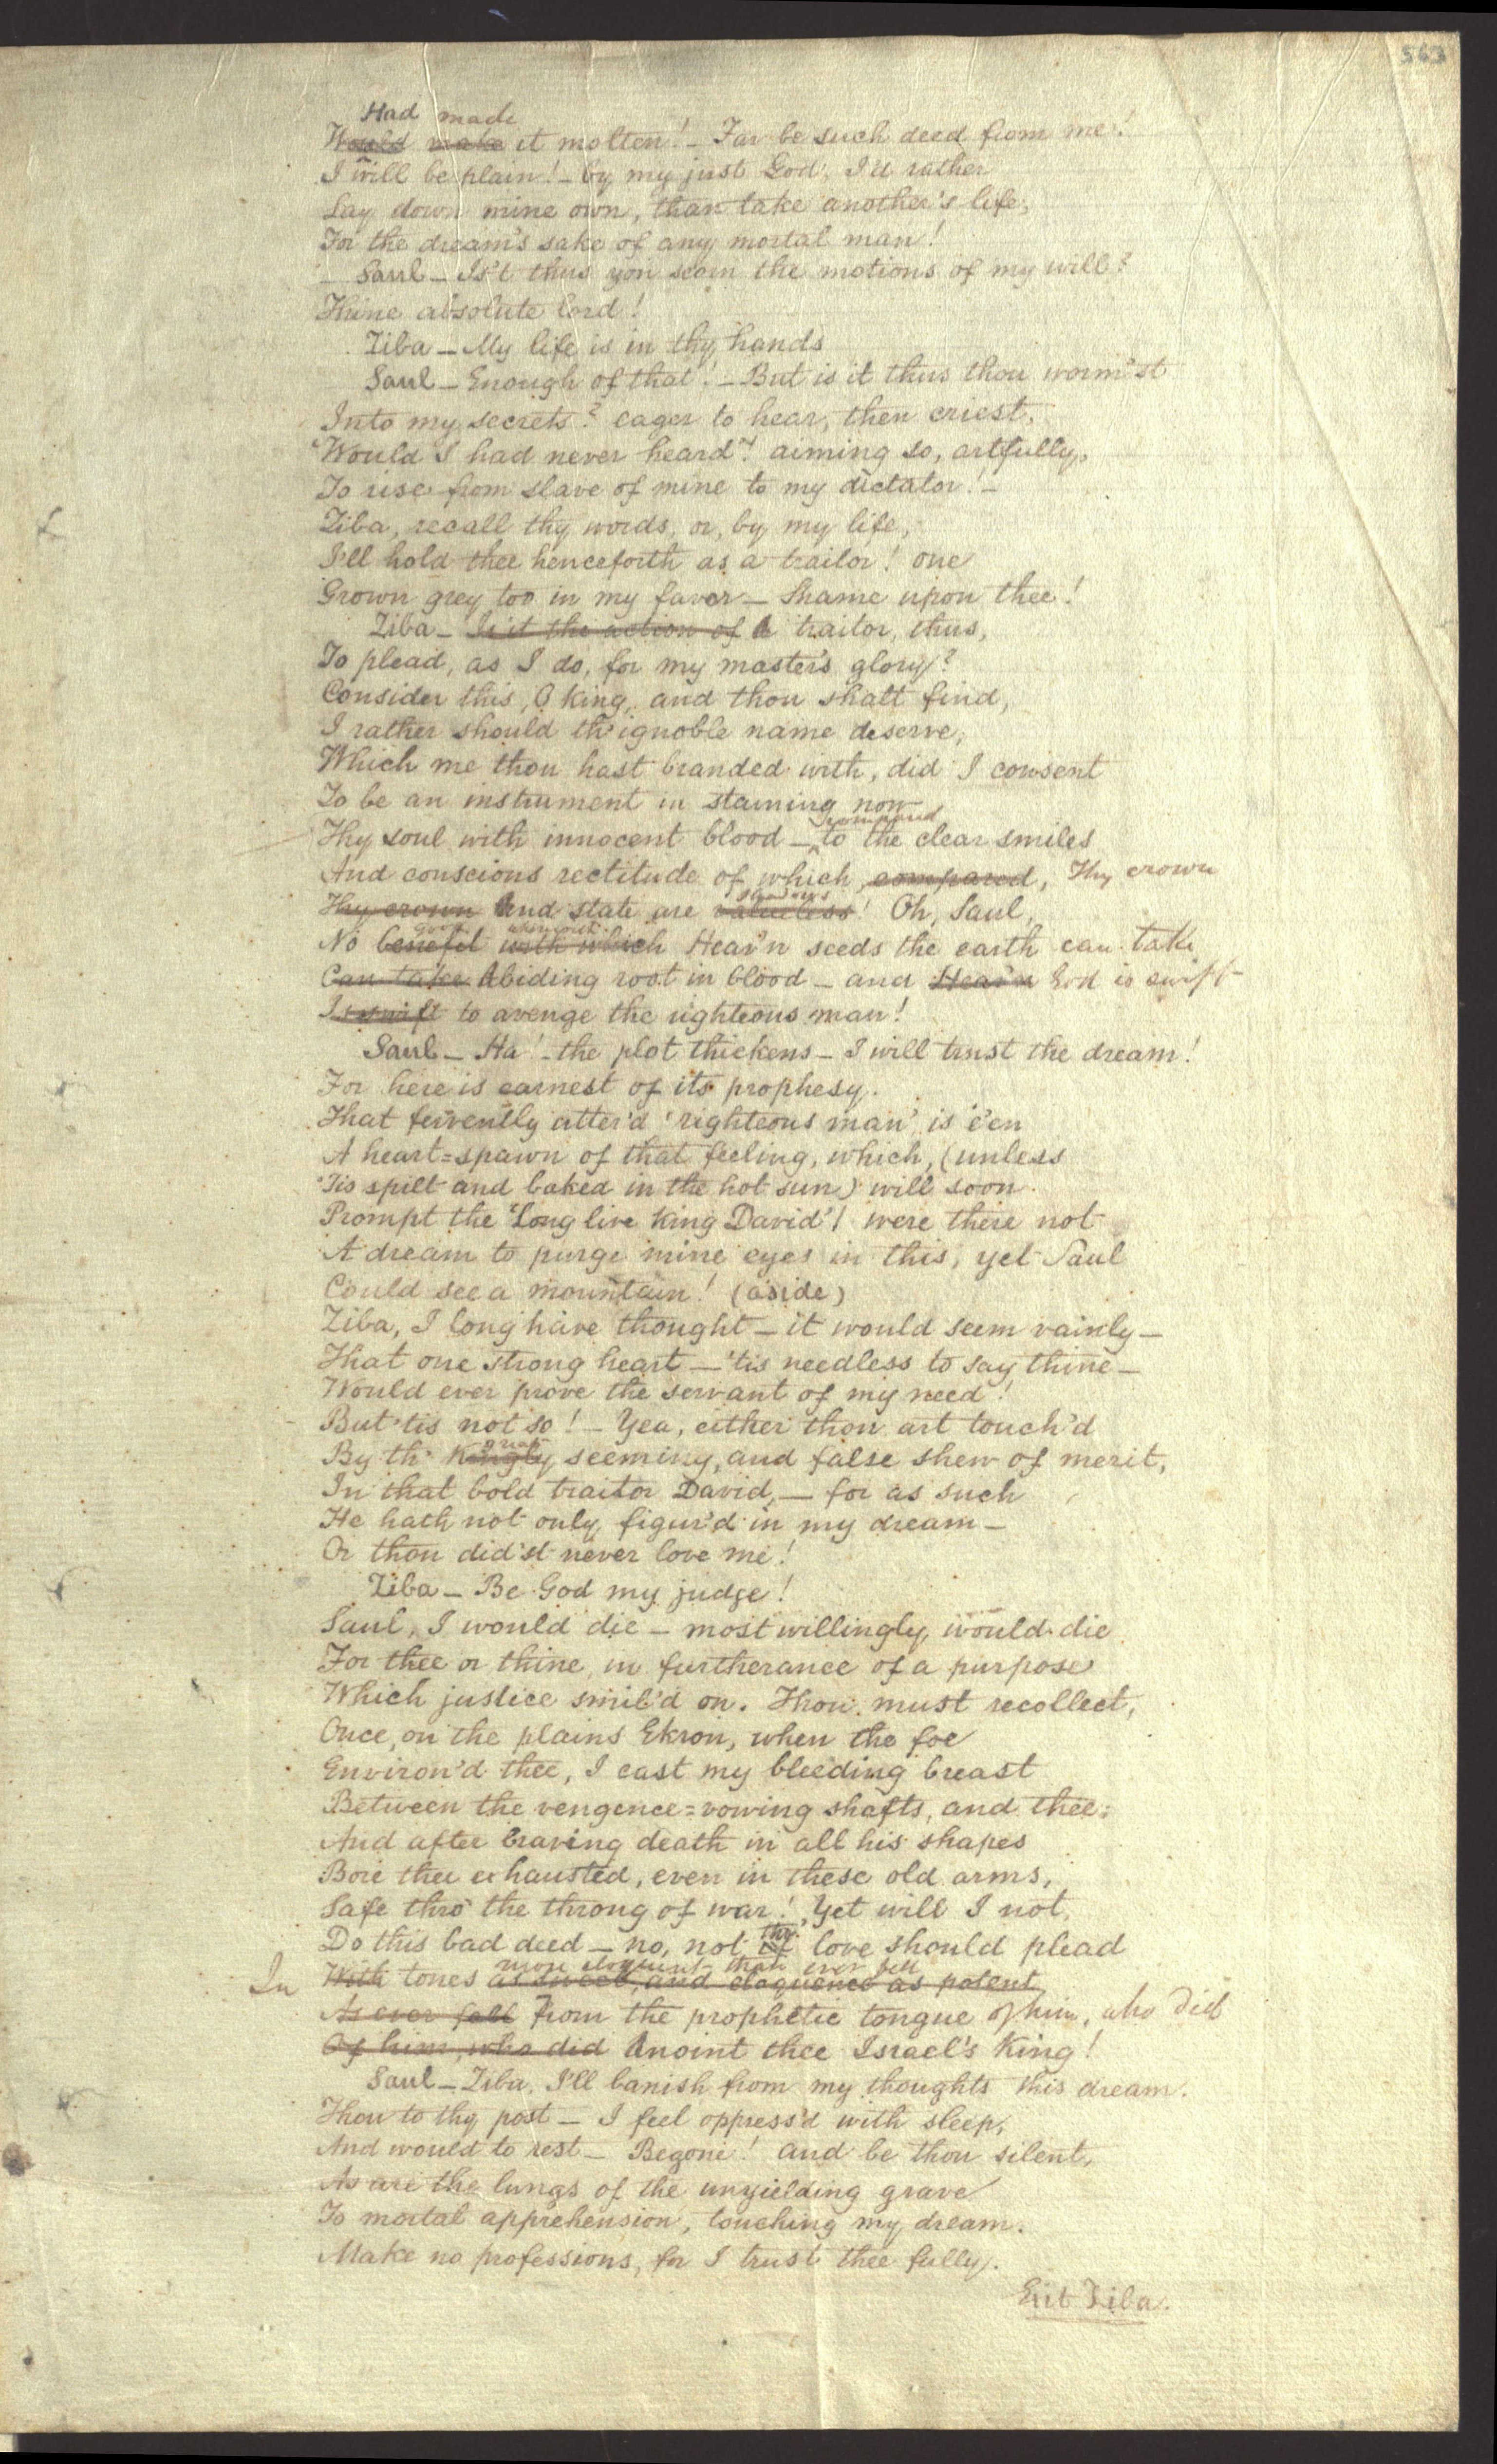 563
Had made
Would make it molten! – Far be such deed from me!
I will be plain! – by my just God, I'd rather
Lay down mine own, than take another's life,
For the dream's sake of any mortal man!
Saul – Is't thus you scorn the motions of my will?
Thine absolute lord!
Ziba – My life is in thy hands
Saul – Enough of that! – But is it thus thou worm'st
Into my secrets? eager to hear, then criest,
'Would I had never heard'! aiming so, artfully,
To rise from slave of mine to my dictator! –
Ziba, recall thy words, or, by my life,
I'll hold thee henceforth as a traitor! one
Grown grey too in my favor – Shame upon thee!
Ziba – Is it the action of A traitor, thus,
To plead, as I do, for my master's glory?
Consider this, O King, and thou shalt find,
I rather should th' ignoble name deserve,
Which me thou hast branded with, did I consent
To be an instrument in staining now
Thy soul with innocent blood – to the clear smiles
And conscious rectitude of which, compared, Thy crown
shadows
Thy crown And state are valueless! Oh, Saul,
good
No benefit with which Heav'n seeds the earth can take
Can take Abiding root in blood – and Heav'n God is swift
Is swift to avenge the righteous man!
Saul – Ha! – the plot thickens – I will trust the dream!
For here is earnest of its prophesy.
That fervently utter'd 'righteous man' is e'en
A heart=spawn of that feeling, which, (unless
'Tis spilt and baked in the hot sun) will soon
Prompt the 'Long live King David'! were there not
A dream to purge mine eyes in this, yet Saul
Could see a mountain! (aside)
Ziba, I long have thought – it would seem vainly –
That one strong heart – 'tis needless to say thine –
Would ever prove the servant of my need!
But 'tis not so! – Yea, either thou art touch'd
great
By th' Kingly seeming, and false shew of merit,
In that bold traitor David, – for as such
He hath not only figur'd in my dream –
Or thou did'st never love me!
Ziba – Be God my judge!
Saul, I would die – most willingly, would die
For thee or thine, in furtherance of a purpose
Which justice smil'd on. Thou must recollect,
Once, on the plains Ekron, when the foe
Environ'd thee, I cast my bleeding breast
Between the vengence=vowing shafts, and thee:
And after braving death in all his shapes
Bore thee exhausted, even in these old arms,
Safe thro' the throng of war! Yet will I not,
thy
Do this bad deed – no, not if love should plead
more eloquent than ever fell
In With tones as sweet, and eloquence as potent
As ever fell From the prophetic tongue of him, who did
Of him, who did Anoint thee Israel's King!
Saul – Ziba, I'll banish from my thoughts this dream.
Thou to thy post – I feel oppress'd with sleep,
And would to rest – Begone! and be thou silent,
As are the lungs of the unyielding grave
To mortal apprehension, touching my dream.
Make no professions, for I trust thee fully.
Exit Ziba.